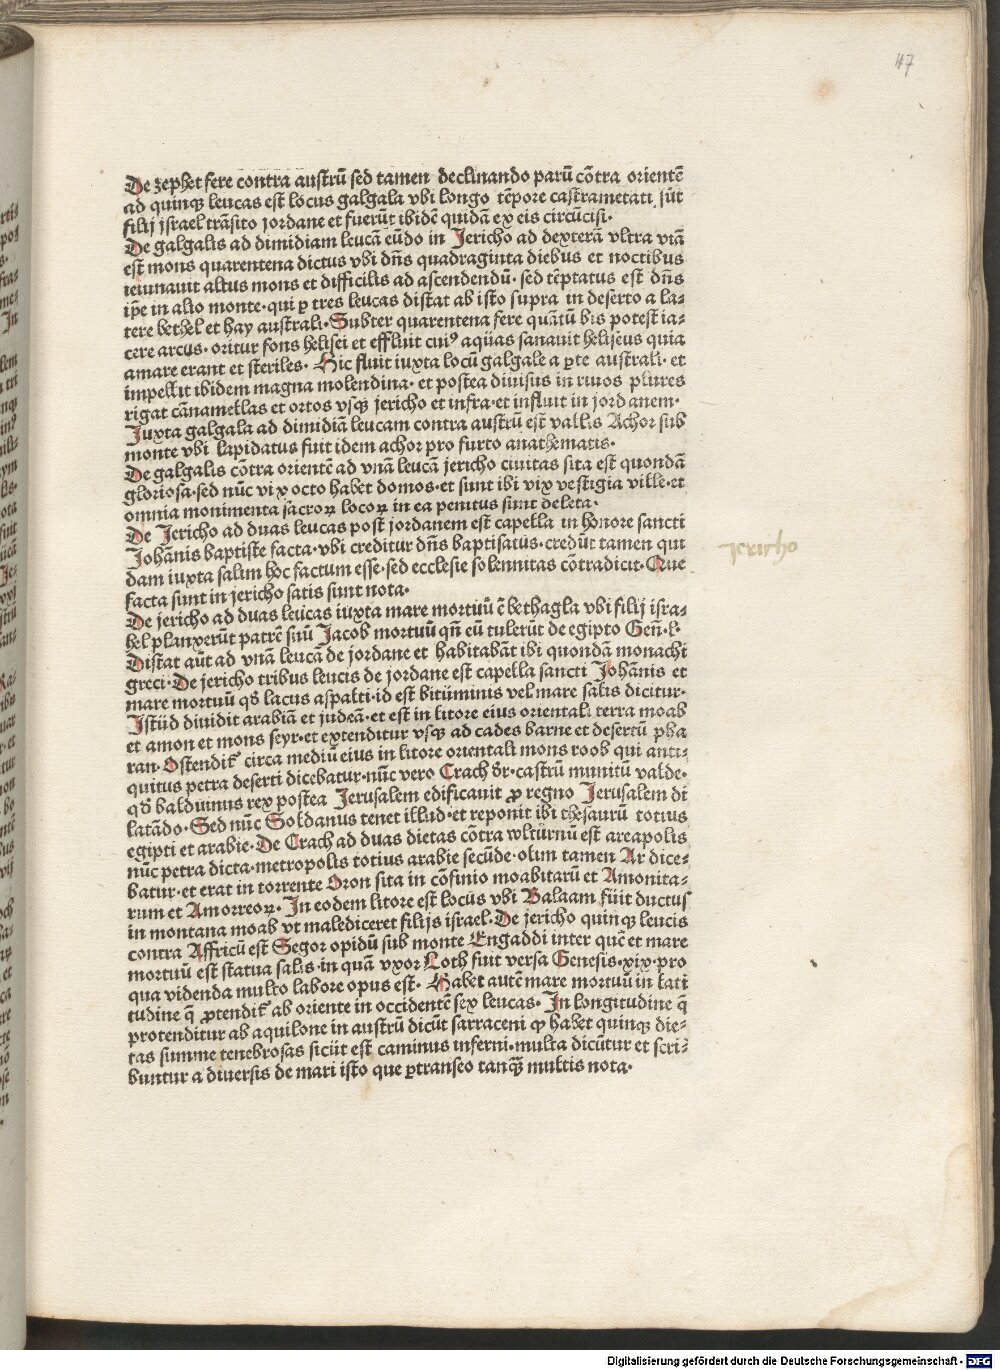 47
De zephet fere contra austrū sed tamen declinando parū cōtra orientē
ad quinq; leucas est locus galgala vbi longo tēpore castrametati sūt
filij israel trāsito jordane et fuerūt ibidē quidā ex eis circūcisi·
De galgalis ad dimidiam leucā eūdo in Jericho ad dexterā vltra viā
est mons quarentena dictus vbi dn̄s quadraginta diebus et noctibus
ieiunauit altus mons et difficilis ad ascendendū· sed tēptatus est dn̄s
ip̄e in alio monte· qui ꝑ tres leucas distat ab isto supra in deserto a la-
tere bethel et hay australi· Subter quarentena fere quātū bis potest ia-
cere arcus· oritur fons helisei et effluit cuiꝰ aquas sanauit heliseus quia
amare erant et steriles· Hic fluit iuxta locū galgale a ꝑte australi· et
impellit ibidem magna molendina· et postea diuisus in riuos plures
rigat cānamellas et ortos vsq; jericho et infra· et influit in jordanem·
Juxta galgala ad dimidiā leucam contra austrū est vallis Achor sub
monte vbi lapidatus fuit idem achor pro furto anathematis·
De galgalis cōtra orientē ad vnā leucā jericho ciuitas sita est quondā
gloriosa· sed nūc vix octo habet domos· et sunt ibi vix vestigia ville· et
omnia monimenta sacroꝝ locoꝝ in ea penitus sunt deleta·
De Jericho ad duas leucas post jordanem est capella in honore sancti
Johānis baptiste facta· vbi creditur dn̄s baptisatus· credūt tamen qui
dam iuxta salim hoc factum esse· sed ecclesie solennitas cōtradicit· Que
facta sunt in jericho satis sunt nota·
Jericho
De jericho ad duas leucas iuxta mare mortuū ē bethagla vbi filij isra-
hel planxerūt patrē suū Jacob mortuū qn̄ eū tulerūt de egipto Gen̄· l·
Distat aūt ad vnā leucā de jordane et habitabāt ibi quondā monachi
greci· De jericho tribus leucis de jordane est capella sancti Johānis et
mare mortuū qd̄ lacus aspalti· id est bituminis vel mare salis dicitur·
Istud diuidit arabiā et judeā· et est in litore eius orientali terra moab
et amon et mons seyr· et extenditur vsq; ad cades barne et desertū pha
ran· Ostendit᷑ circa mediū eius in litore orientali mons roob qui anti-
quitus petra deserti dicebatur· nūc vero Crach dr̄· castrū munitū valde·
qd̄ balduinus rex postea Jerusalem edificauit ꝓ regno Jerusalem di
latādo· Sed nūc Soldanus tenet illud· et reponit ibi thesaurū totius
egipti et arabie· De Crach ad duas dietas cōtra wlturnū est areapolis
nūc petra dicta· metropolis totius arabie secūde· olim tamen Ar dice-
batur· et erat in torrente Oron sita in cōfinio moabitarū et Amonita-
rum et Amorreoꝝ· In eodem litore est locus vbi Balaam fuit ductus
in montana moab vt malediceret filijs israel· De jericho quinq; leucis
contra Affricū est Segor opidū sub monte Engaddi inter quē et mare
mortuū est statua salis· in quā vxor Loth fuit versa Genesis· xix· pro
qua videnda multo labore opus est· Habet autē mare mortuū in lati
tudine q̄ ꝓtendit᷑ ab oriente in occidentē sex leucas· In longitudine q̄
protenditur ab aquilone in austrū dicūt sarraceni ꝙ habet quinq; die-
tas summe tenebrosas sicut est caminus inferni· multa dicūtur et scri-
buntur a diuersis de mari isto que ꝑtranseo tanqȝ multis nota·
Digitalisierung gefördert durch die Deutsche Forschungsgemeinschaft - DFG